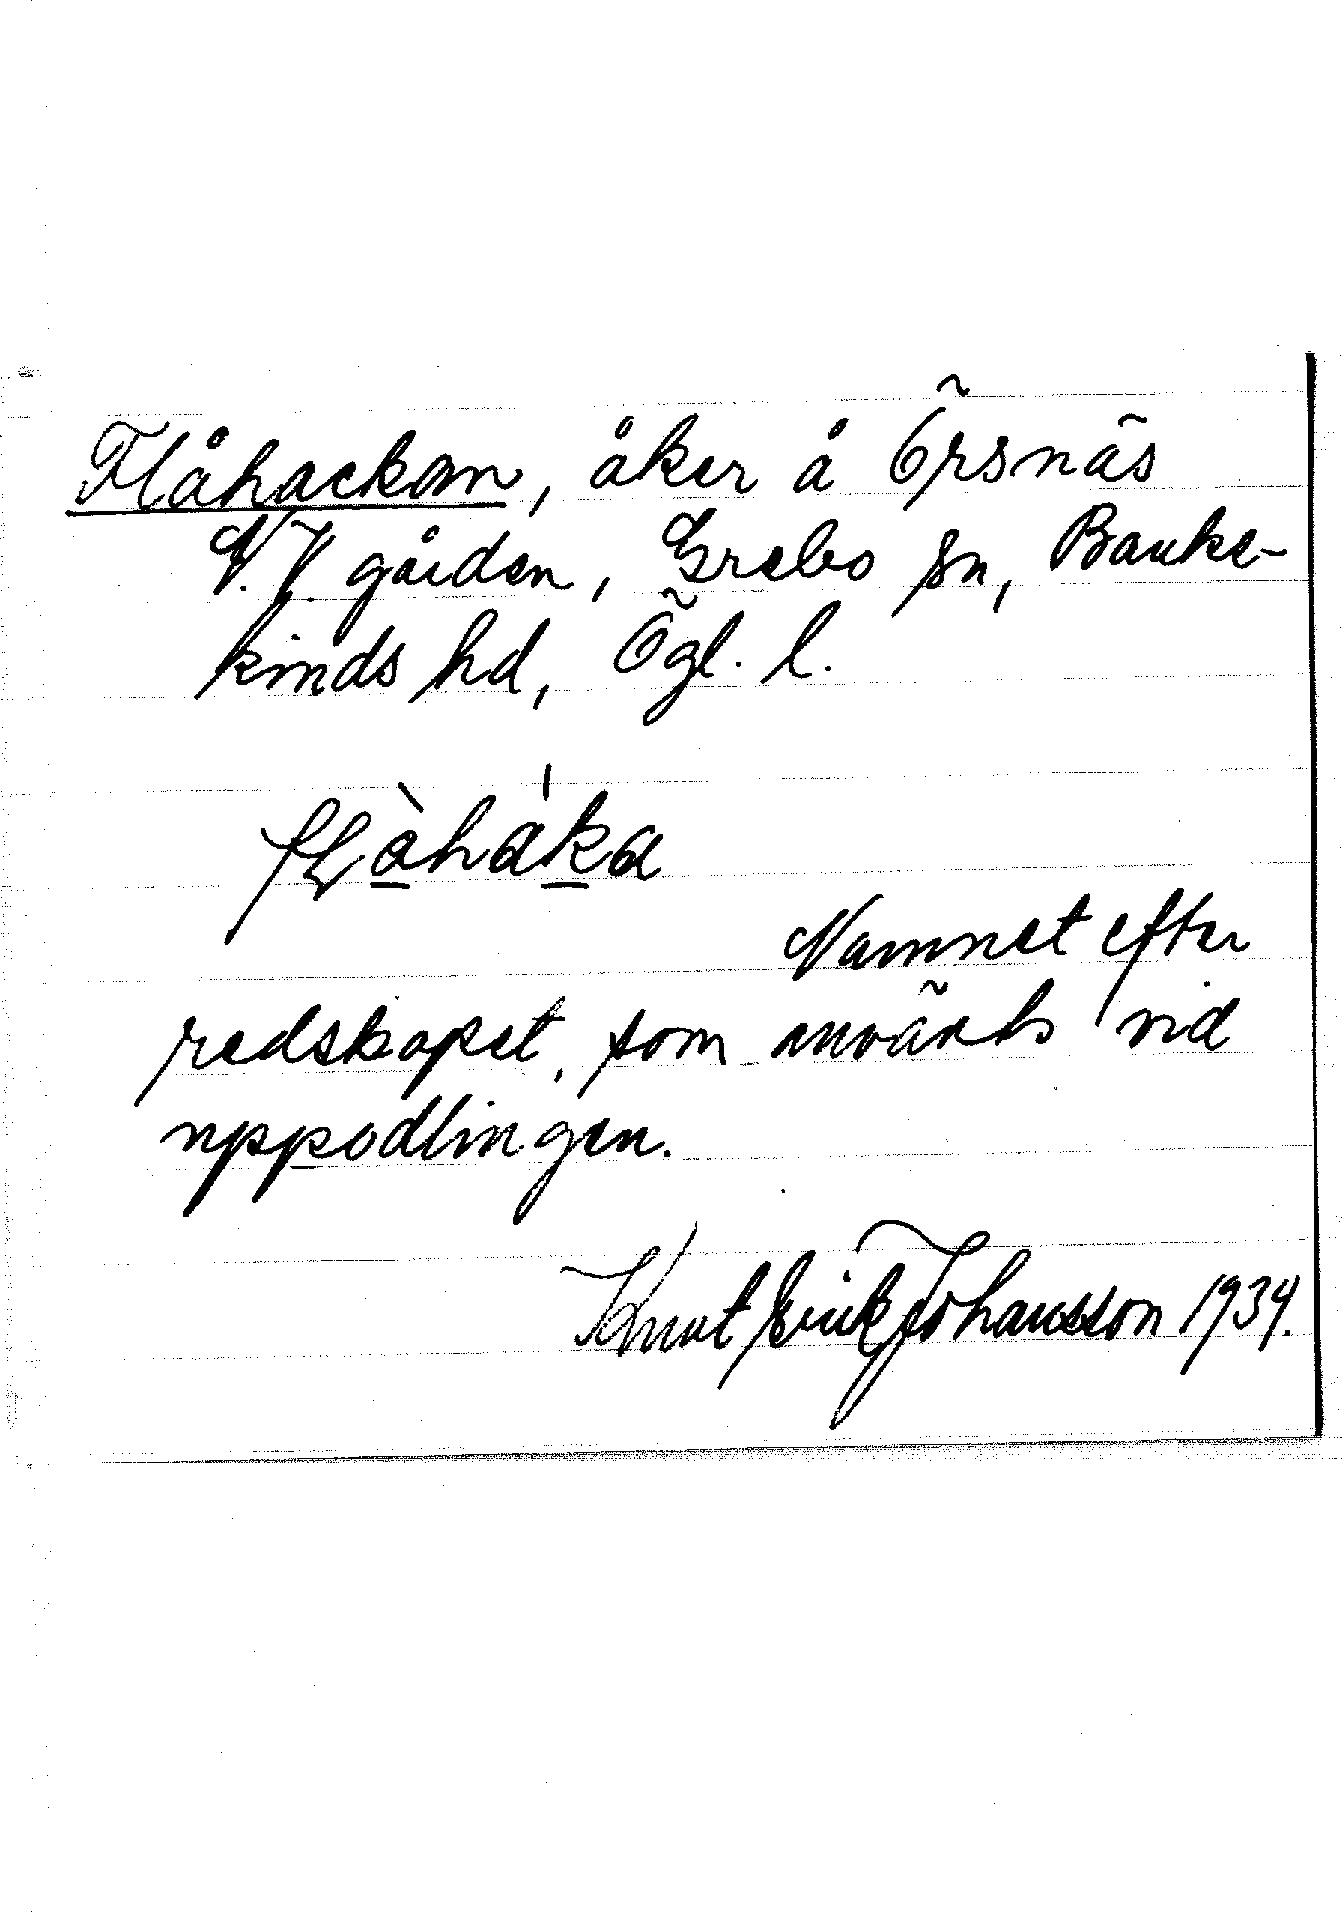 Flåhackan, åker å Örsnäs
V. V. gården, Grebo sn, Banke-
kinds hd, Ögl. l.
Namnet efter
redskapet, som använts vid
uppodlingen.
Knut Erik Johansson 1934.